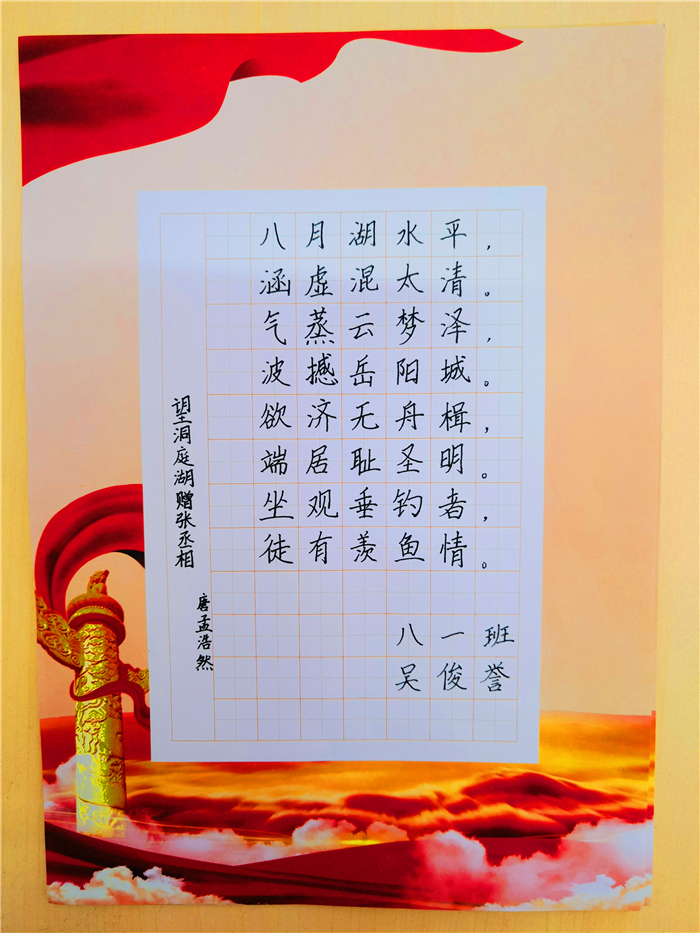 八月湖水平，
涵虚混太清。
气蒸云梦泽，
波撼岳阳城。
欲济无舟楫，
端居耻圣明。
坐观垂钓者，
徒有羡鱼情。
望洞庭湖赠张丞相
唐孟浩然
八一班
吴俊誉